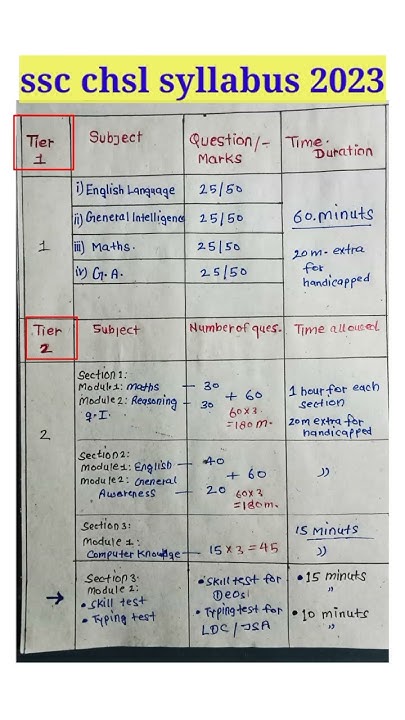 ssc chsl syllabus 2023
Tier 1 Subject Question/- Marks Time. Duration
1
i) English Language 25/50
ii) General Intelligence 25/50
iii) Maths. 25/50
iv) G.A. 25/50
60.minuts
20 m. extra
for
handicapped
Tier 2 Subject Number of ques. Time allowed
2
Section 1:
Module 1: maths — 30
Module 2: Reasoning — 30
g.I.
+ 60
60x3
=180 m.
1 hour for each
section
20m extra for
handicapped
Section 2:
Module 1: English — 40
Module 2: General
Awareness — 20
+ 60
60x3
=180m.
"
Section 3:
Module 1:
Computer Knowge — 15 x 3 = 45
15 Minuts
"
→ Section 3.
Module 2:
• Skill test
• Typing test
• Skill test for
DEOs!
• Typing test for
LDC / JSA
• 15 minuts
"
• 10 minuts
"